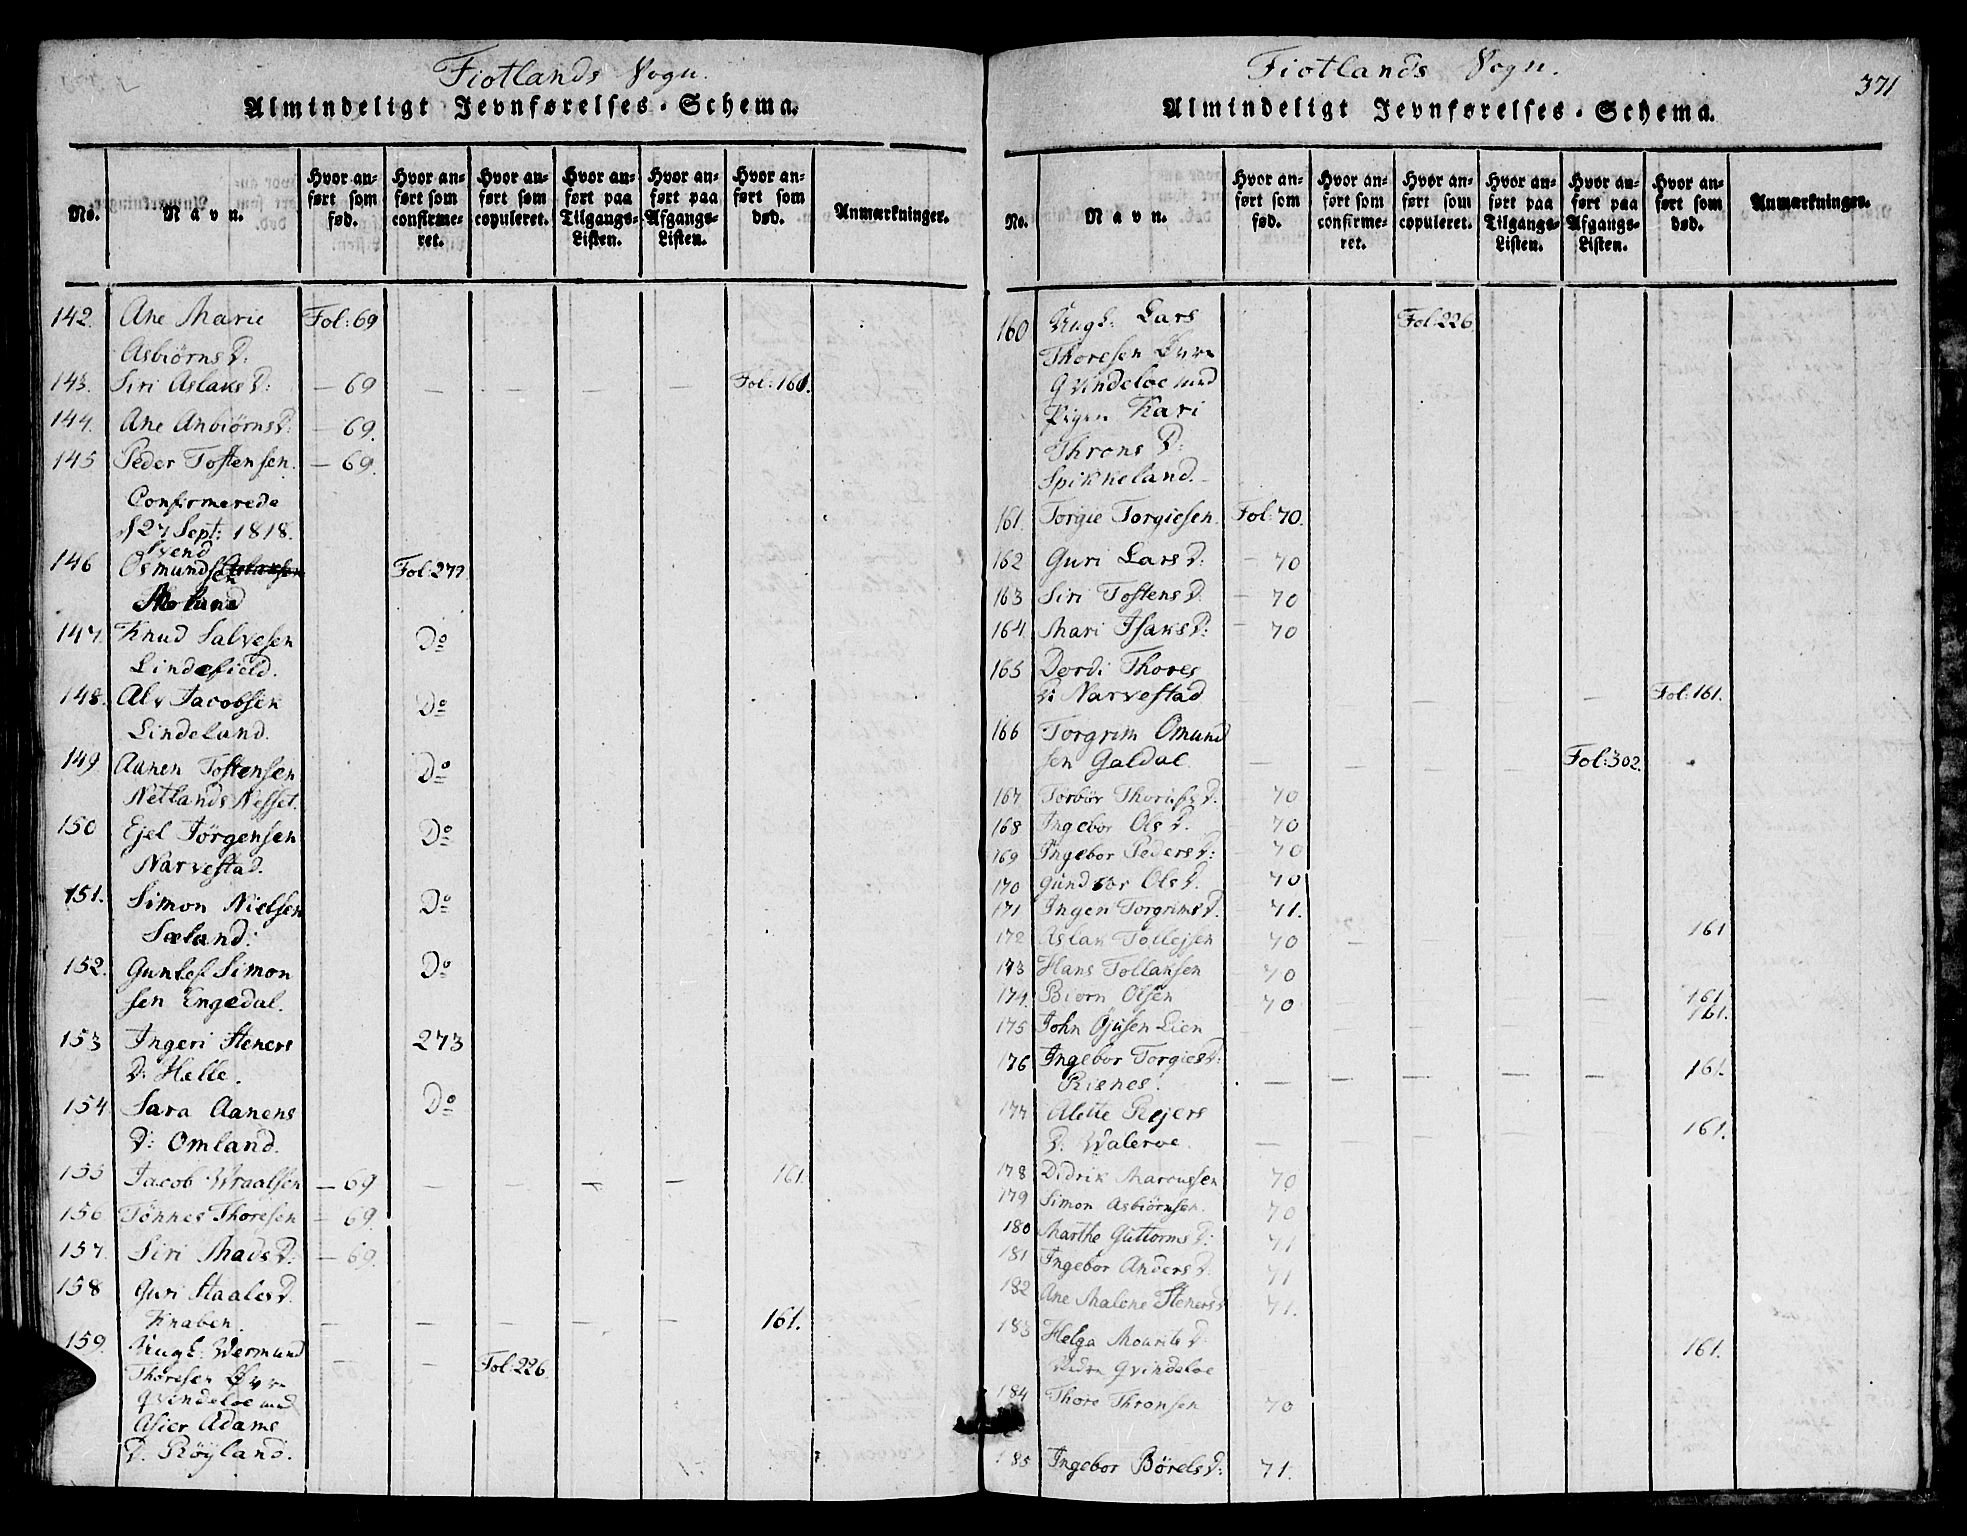 Fiotlands Sogn.
Almindeligt Jevnførelses-Schema.
No.
Navn.
Hvor an-
ført som
fød.
Hvor an-
ført som
confirme-
ret.
Hvor an-
ført som
copuleret.
Hvor an-
ført paa
Tilgangs-
Listen.
Hvor an-
ført paa
Afgangs-
Listen.
Hvor an-
ført som
død.
Anmærkninger.
142. Ane Marie Fol: 69
Asbiørns D:
143. Siri Aslaks D: — 69 — — — — Fol: 161.
144. Ane Anbiørns D: — 69.
145 Peder Tostensen. — 69.
Confirmerede
d 27 Sept: 1818.
Svend
146 Osmundsen Fol: 272
147. Knud Salvesen Do
Lindefield.
148. Alv Jacobsen Do
Lindeland.
149 Aanen Tostensen Do
Netlands Nesset.
150 Ejel Jørgensen Do
Narvestad.
151. Simon Nielsen Do
Sæland.
152. Gunlef Simon Do
sen Engedal.
153 Ingeri Steners 273
D: Helle.
154 Sara Aanens Do
D: Omland.
155 Jacob Wraalsen — 69 — — — — 161.
156 Tønnes Thoresen — 69.
157. Siri Mads D: — 69.
158 Guri Staales D.
Knaben. — — — — — 161.
159. Ungk: Wermund
Thoresen Øvre — — Fol: 226
Qvindeloe med
Asier Adams
D. Røyland.
Fiotlands Sogn.
371
Almindeligt Jevnførelses-Schema.
No.
Navn.
Hvor an-
ført som
fød.
Hvor an-
ført som
confirme-
ret.
Hvor an-
ført som
copuleret.
Hvor an-
ført paa
Tilgangs-
Listen.
Hvor an-
ført paa
Afgangs-
Listen.
Hvor an-
ført som
død.
Anmærkninger.
160 Ungk: Lars Fol: 226.
Thoresen Øvre
Qvindeloe med
Pigen Kari
Throns D:
Spikkeland.
161. Torgie Torgiesen. Fol: 70.
162 Guri Lars D: — 70
163 Siri Tostens D. — 70
164. Mari Isaks D: — 70
165 Dordi Thores
D: Narvestad — — — — — Fol: 161.
166 Torgrim Omund
sen Galdal. — — — — Fol: 302.
167 Torbør D. — 70
168 Ingebor Ols D. — 70
169 Ingebor Peders D: — 70
170 Gundvor Ols D. 70
171 Ingen Torgrims D. — 71.
172 Aslak Tollejsen 70 — — — — 161
173 Hans Tollaksen 70
174. Biorn Olsen 70 — 161
175 John Øjusen Lien — — — — — 161.
176 Ingebor Torgies D:
Risnes. — — — — — 161.
177 Alette Rejers
D. Waleroe. — — — — 161.
178 Didrik Marcussen 70
179 Simon Asbiørnsen. 70
180 Marthe Guttorms D: 71
181 Ingebor Anders D: 71
182 Ane Malene Steners D 71.
183 Helga Mourits D.
Nedre Qvindeloe 161.
184 Thore Thronsen 70
185 Ingebor Børels D: 71.